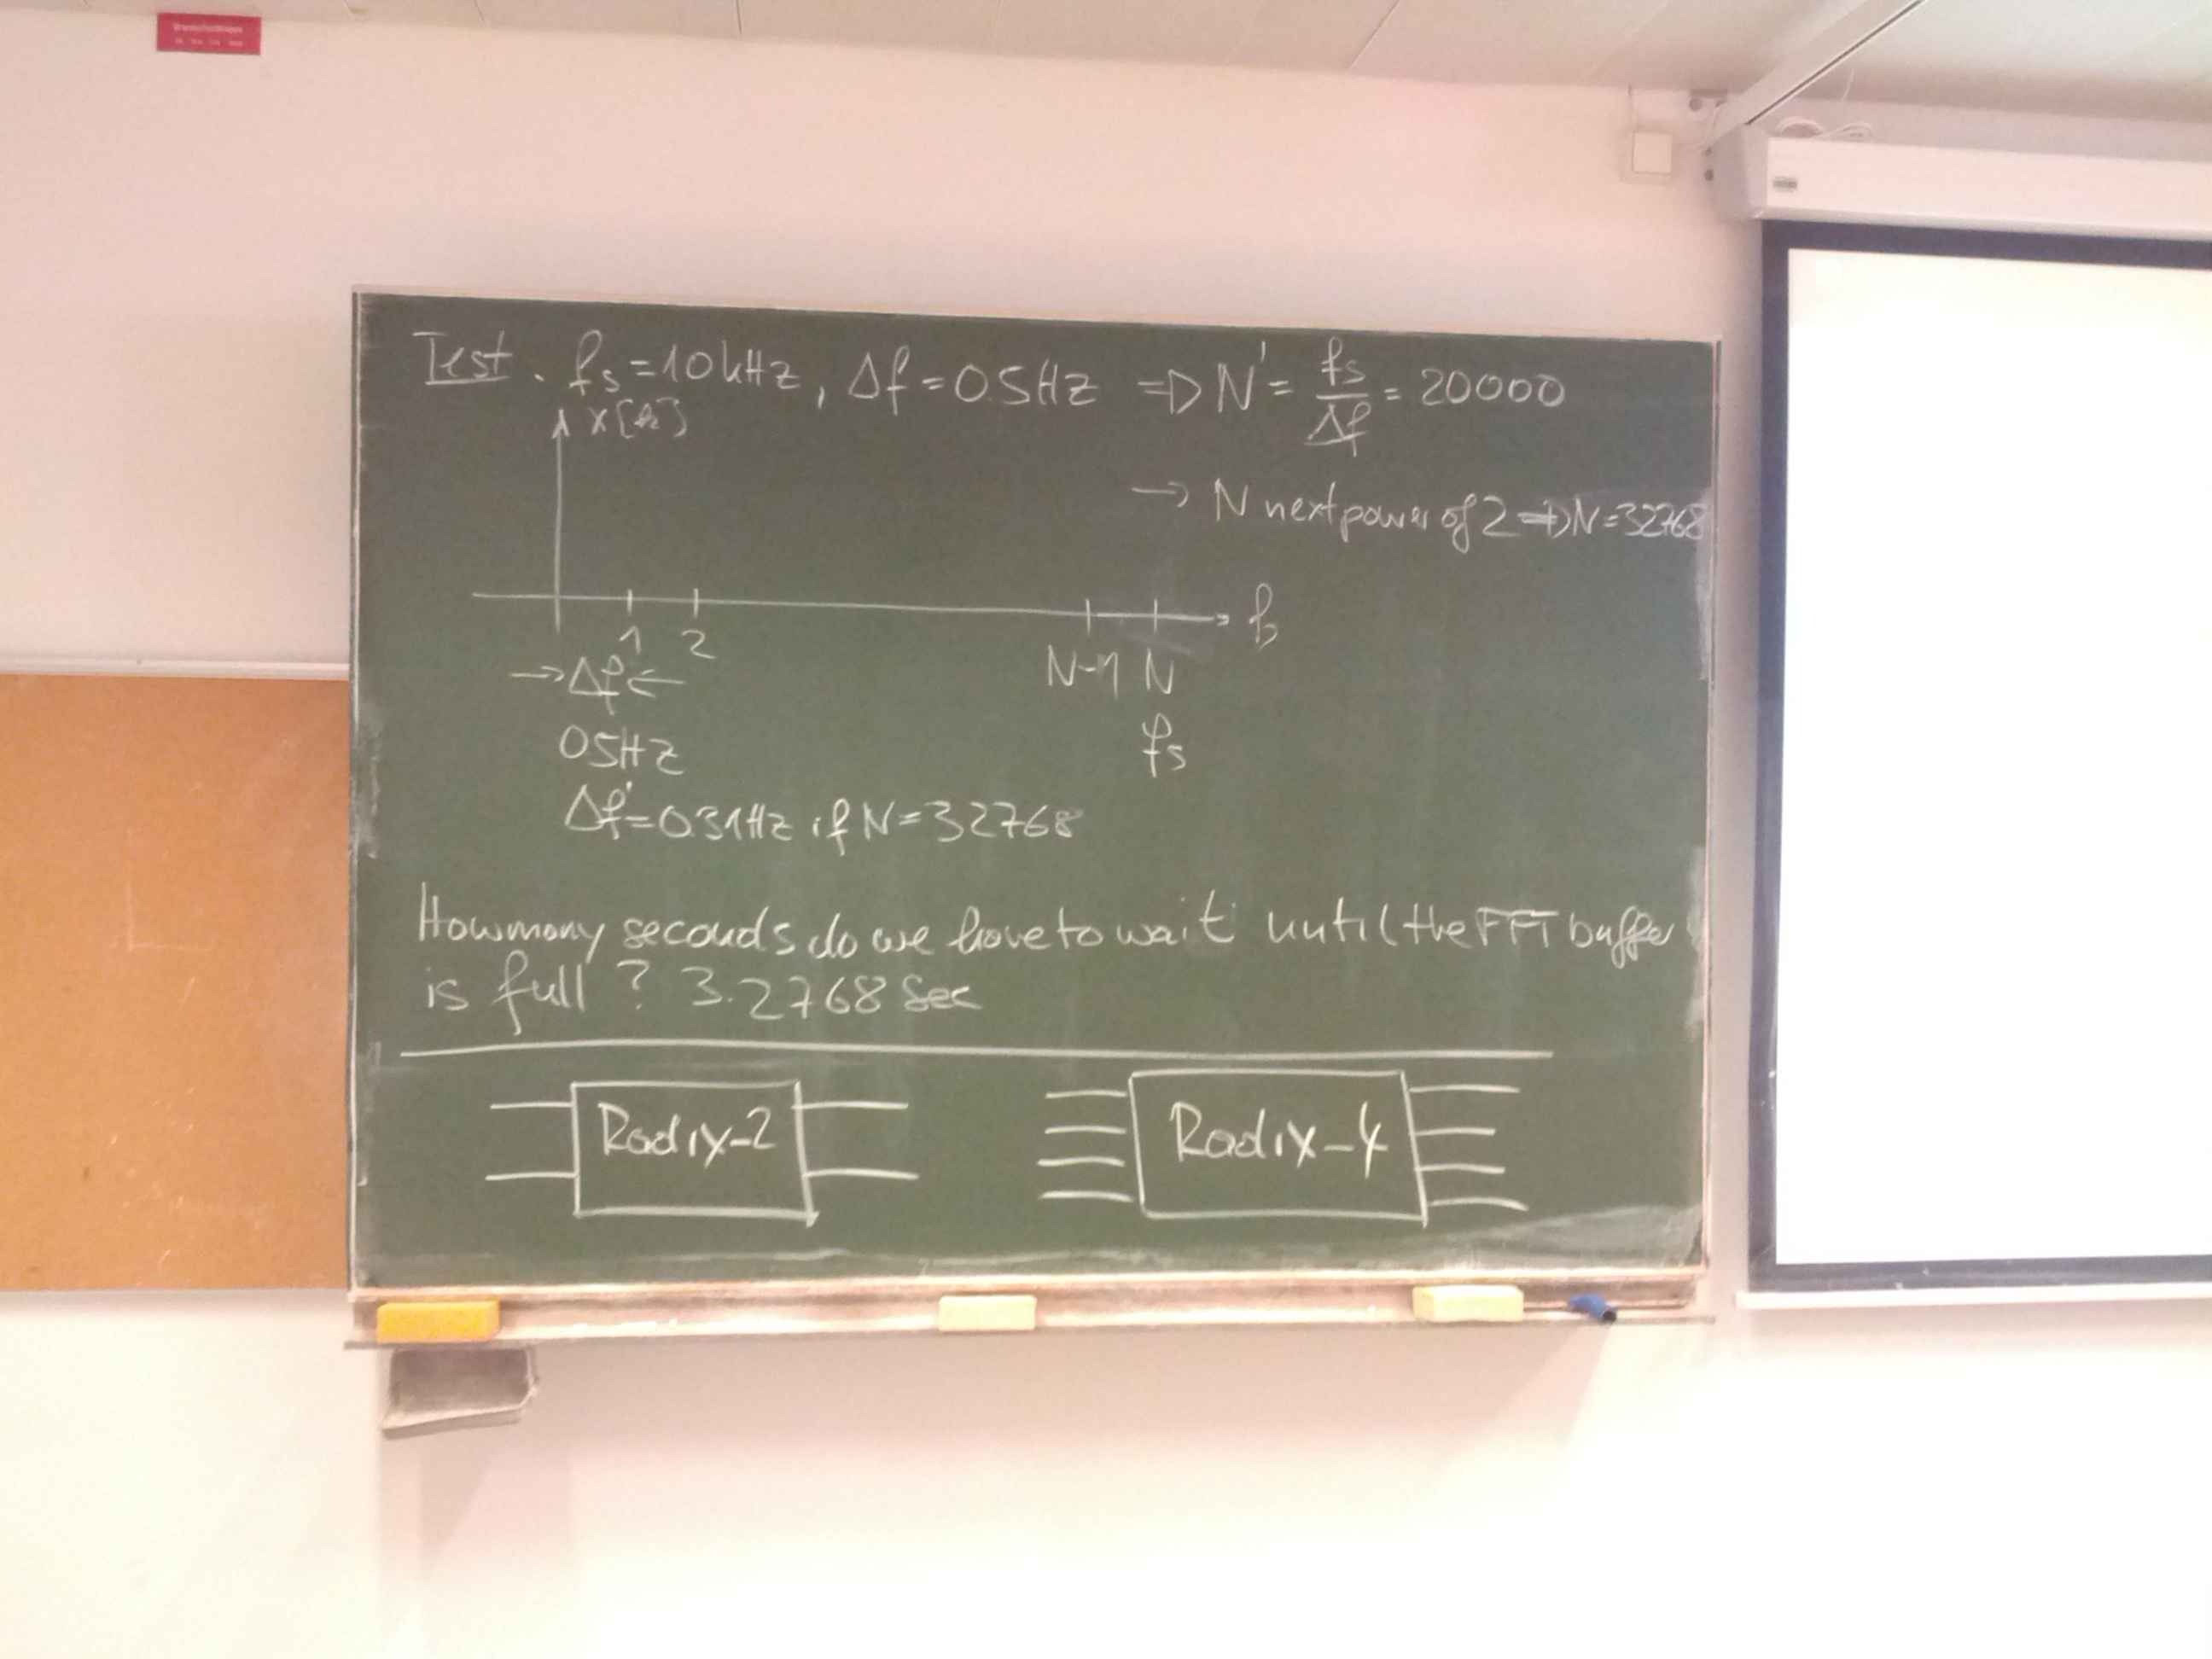 Test. fs = 10 kHz, Δf = 0.5 Hz ⇒ N' = fs/Δf = 20000
X[k]
→ N next power of 2 ⇒ N = 32768
k
1 2 N-1 N
→ Δf ←
0.5 Hz fs
Δf' = 0.31 Hz if N = 32768
How many seconds do we have to wait until the FFT buffer
is full? 3.2768 sec
Radix-2 Radix-4